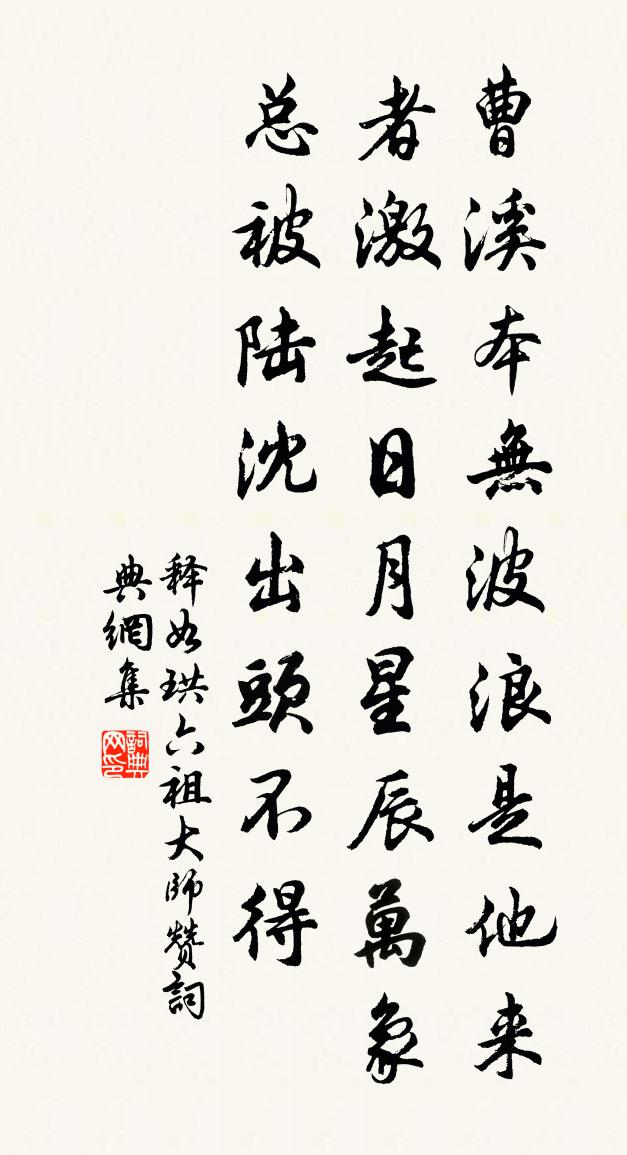 曹溪本無波浪是他来
者激起日月星辰萬象
总被陆沈出頭不得
释如珙六祖大师赞詞
典網集
詞典网印